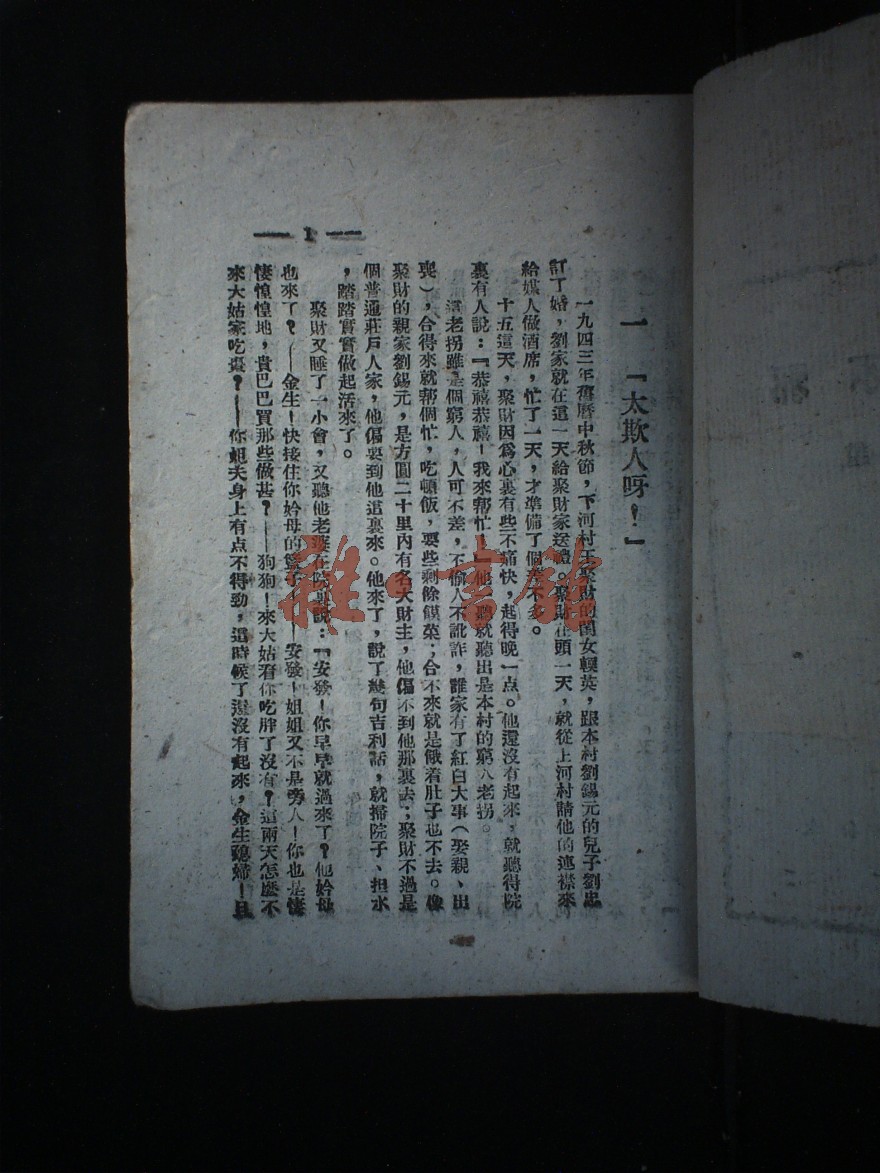 一 「太欺人呀！」
一九四三年舊曆中秋節，下河村王聚財的閨女輭英，跟本村劉錫元的兒子劉忠
訂了婚，劉家就在這一天給聚財家送禮。聚財在頭一天，就從上河村請他的連襟來
給媒人做酒席，忙了一天，才準備了個差不多。
十五這天，聚財因爲心裏有些不痛快，起得晚一点。他還沒有起來，就聽得院
裏有人說：『恭禧恭禧！我來幫忙！』他一聽就聽出是本村的窮人老拐。
這老拐雖是個窮人，人可不差，不偷人不訛詐，誰家有了紅白大事（娶親、出
喪），合得來就帮個忙，吃頓飯，要些剩餘饃菜；合不來就是餓着肚子也不去。像
聚財的親家劉錫元，是方圓二十里內有名大財主，他偏不到他那裏去；聚財不過是
個普通莊戶人家，他偏要到他這裏來。他來了，說了幾句吉利話，就掃院子、担水
，踏踏實實做起活來了。
聚財又睡了一小會，又聽他老婆在院裏說：『安發！你早早就過來了？他妗母
也來了？——金生！快接住你妗母的籃子！——安發！姐姐又不是旁人！你也是悽
悽惶惶地，貴巴巴買那些做甚？——狗狗！來大姑看你吃胖了沒有？這兩天怎麽不
來大姑家吃棗？——你姐夫身上有点不得勁，這時候了還沒有起來，金生媳婦！且
— 1 —
雜·書館